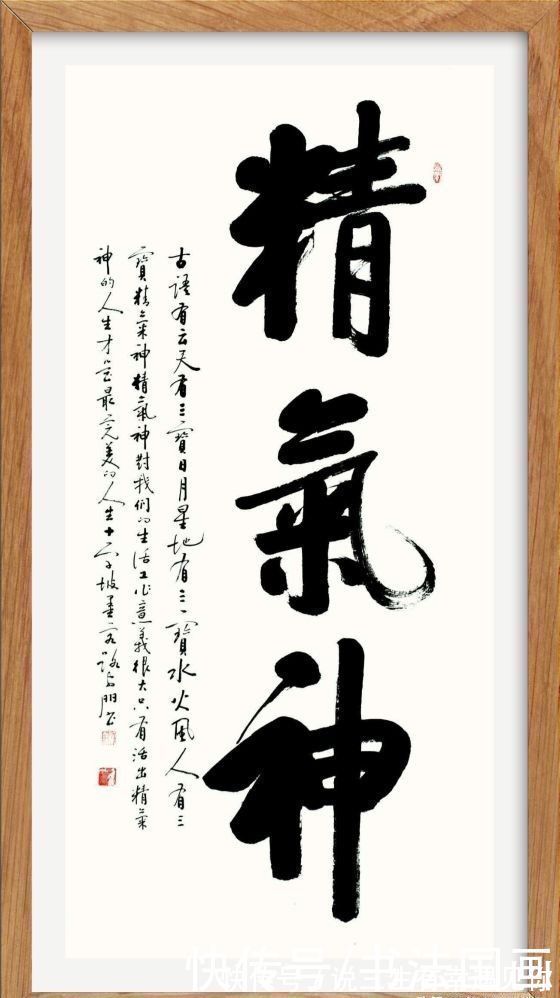 精氣神
古語有云天有三寶日月星地有三寶水火風人有三
寶精氣神精氣神對我們的生活工作意義很大只有活出精氣
神的人生才是最完美的人生
快传号/书法国画